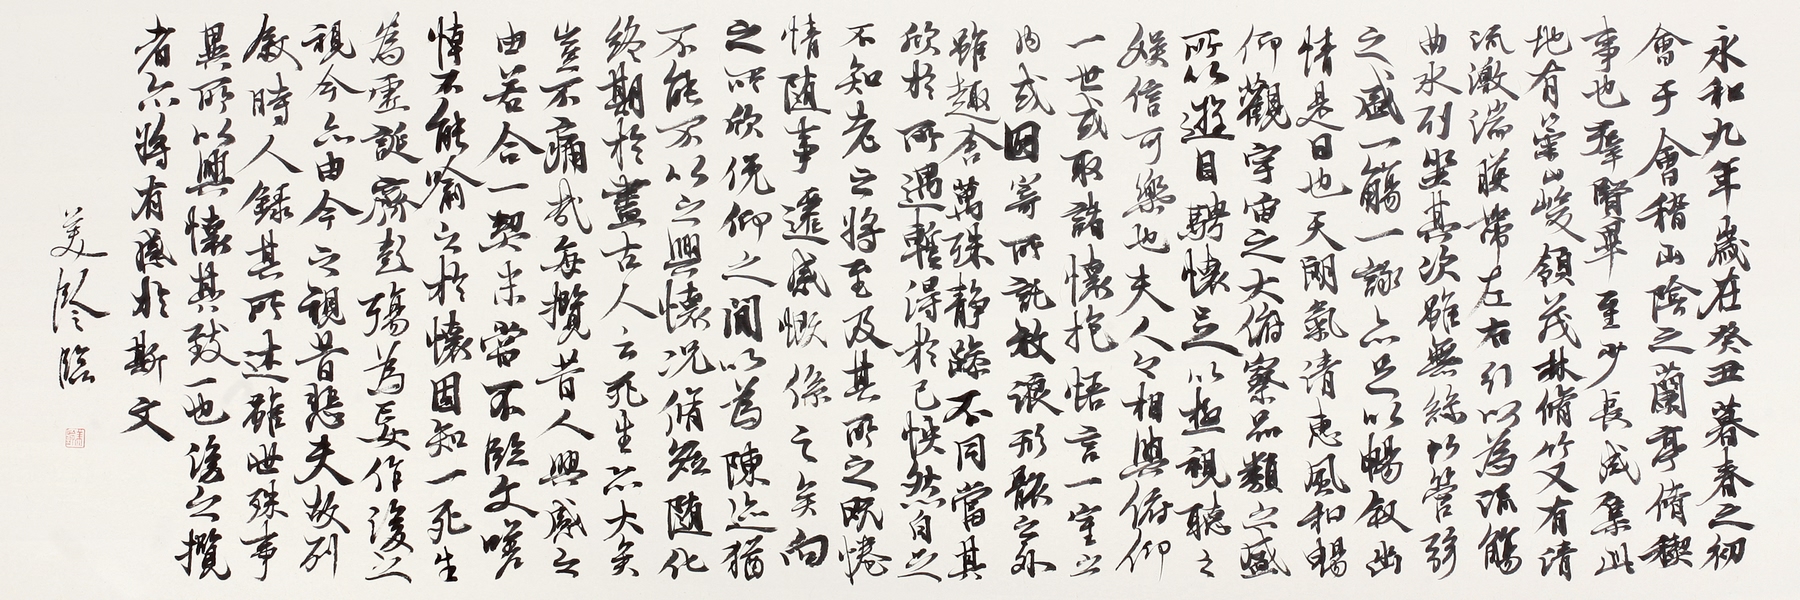 永和九年歲在癸丑暮春之初
會于會稽山陰之蘭亭脩稧
事也羣賢畢至少長咸集此
地有崇山峻領茂林脩竹又有清
流激湍暎帶左右引以為流觴
曲水列坐其次雖無絲竹管弦
之盛一觴一詠亦足以暢敘幽
情是日也天朗氣清恵風和暢
仰觀宇宙之大俯察品類之盛
所以遊目騁懷足以極視聽之
娛信可樂也夫人之相與俯仰
一世或取諸懷抱悟言一室之
內或因寄所託放浪形骸之外
雖趣舍萬殊静躁不同當其
欣於所遇暫得於己怏然自足
不知老之將至及其所之既惓
情隨事遷感慨係之矣向
之所欣俛仰之閒以為陳迹猶
不能不以之興懷況脩短隨化
終期於盡古人云死生亦大矣
豈不痛哉每攬昔人興感之
由若合一契未甞不臨文嗟
悼不能喻之於懷固知一死生
為虛誕齊彭殤為妄作後之
視今亦由今之視昔悲夫故列
敘時人錄其所述雖世殊事
異所以興懷其致一也後之攬
者亦將有感於斯文
臨